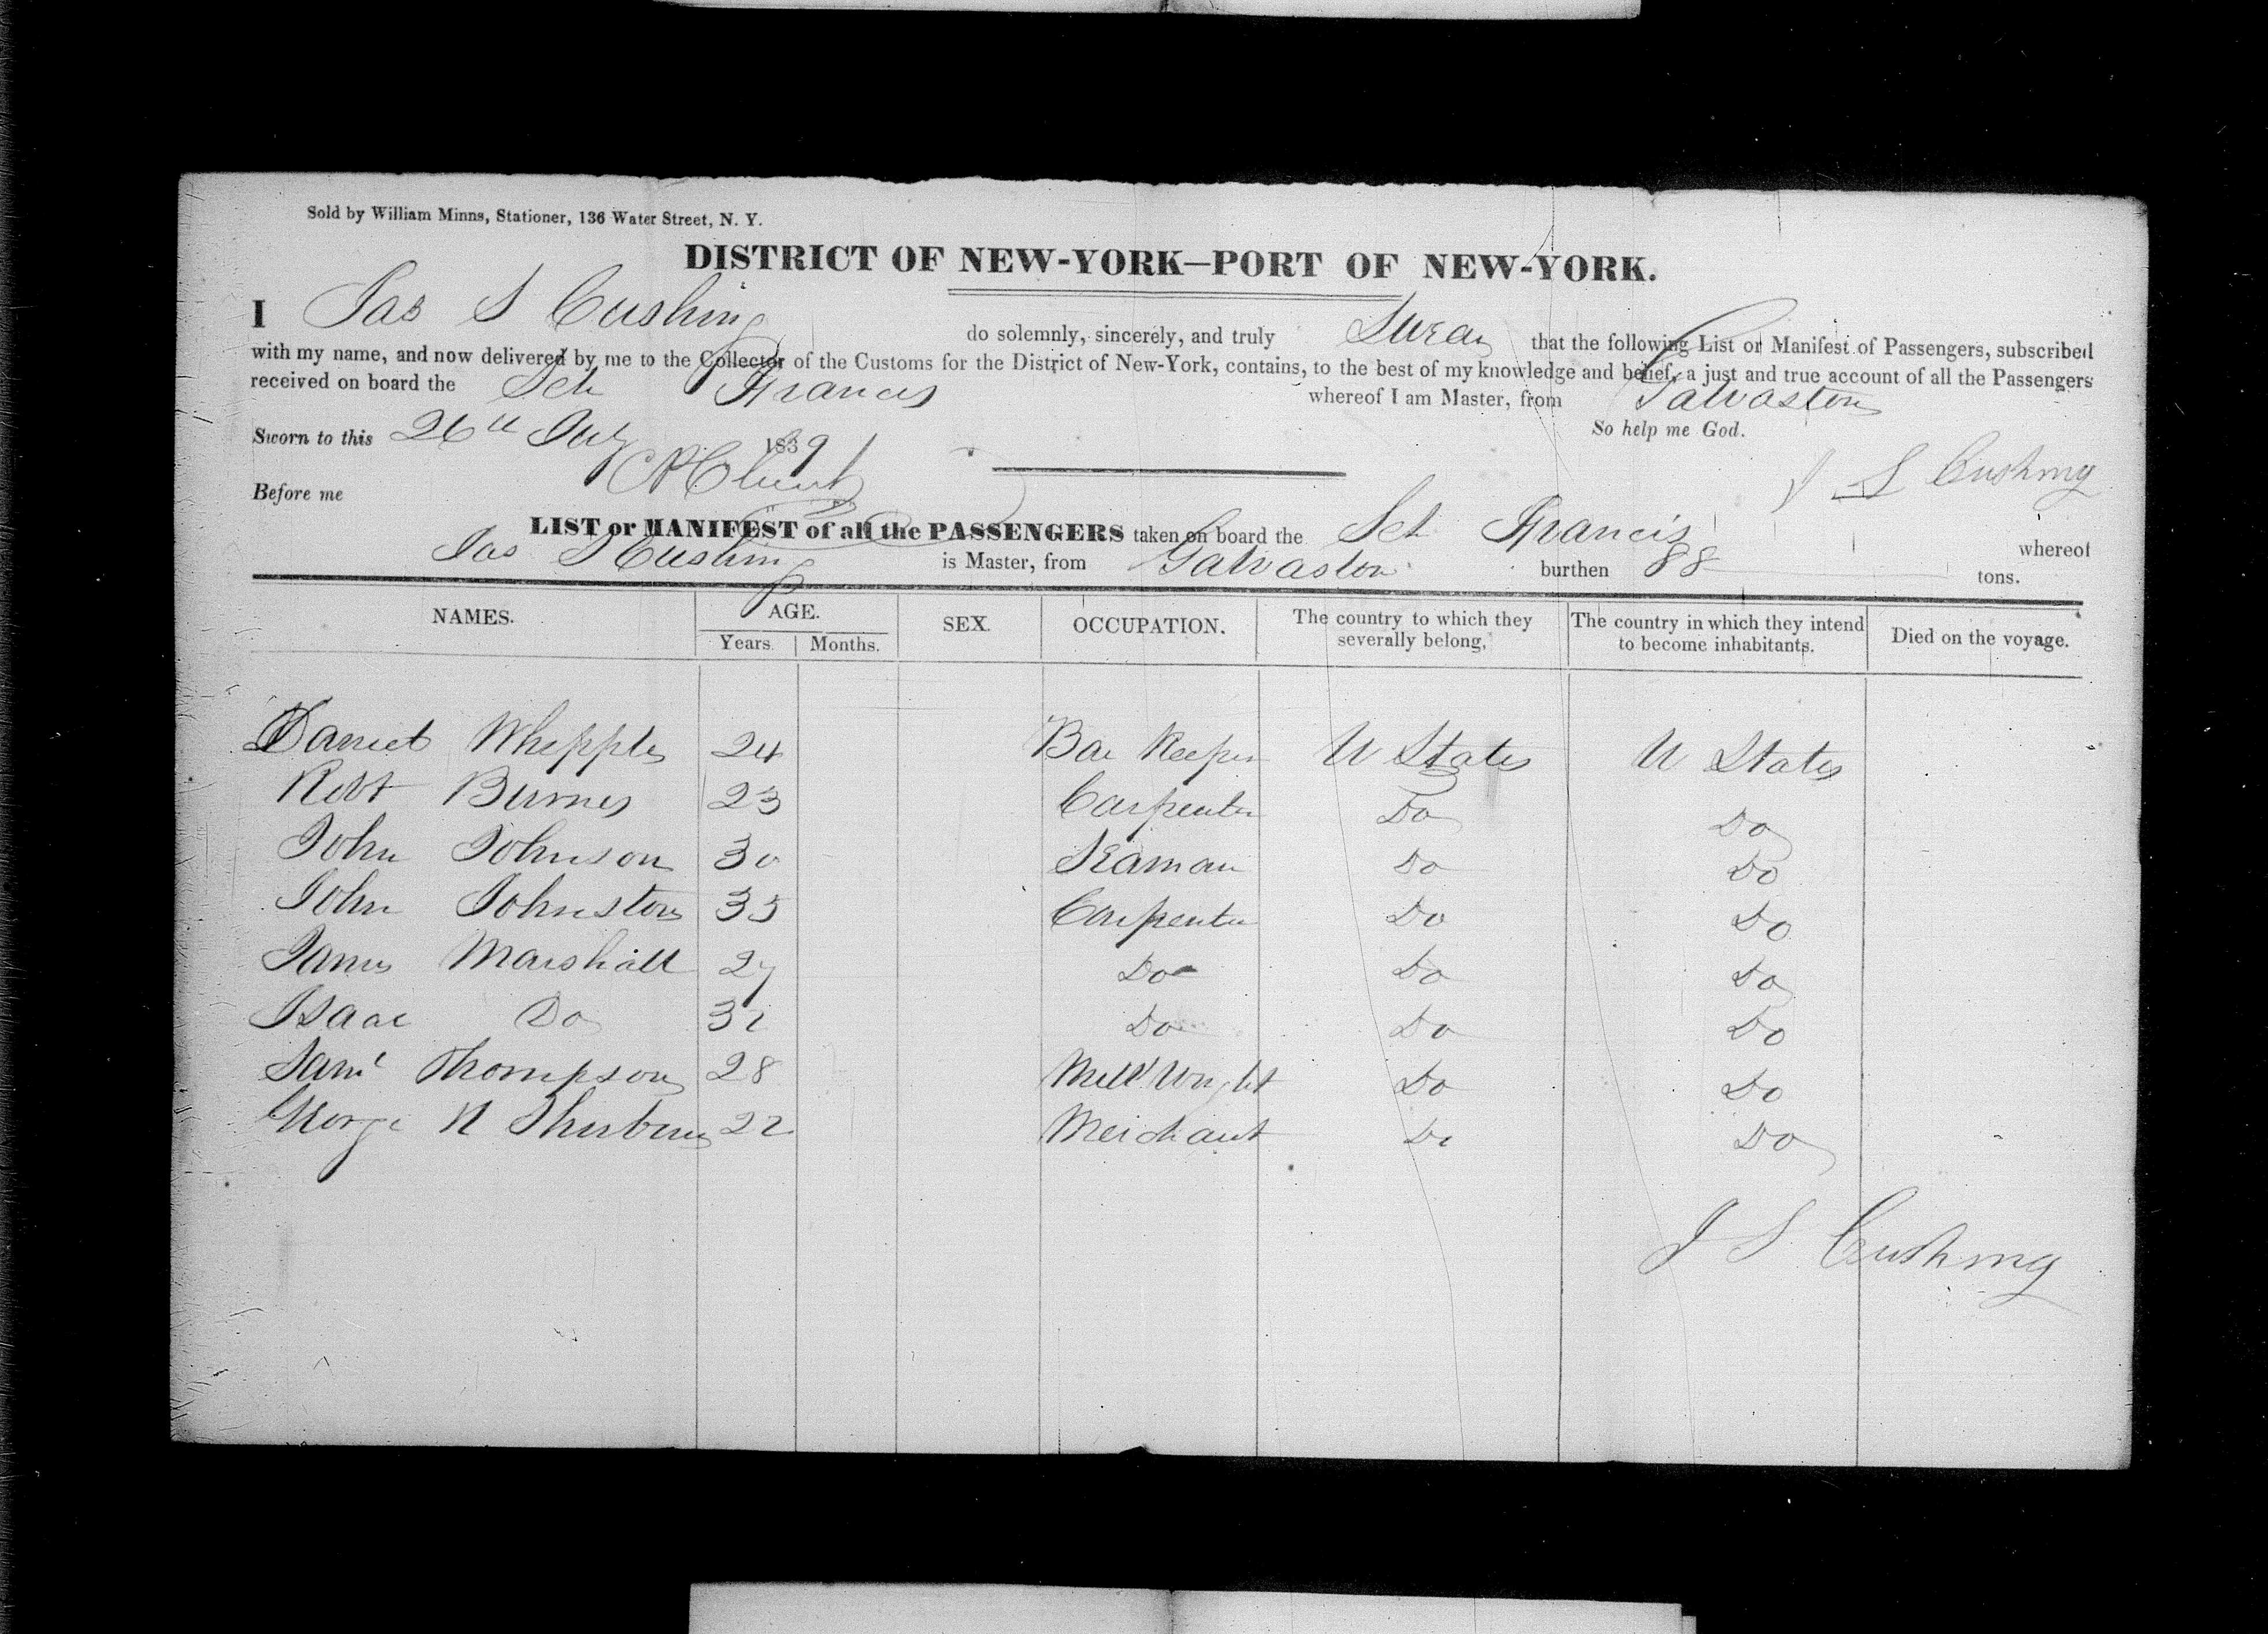 Sold by William Minns, Stationer, 136 Water Street, N. Y.
DISTRICT OF NEW-YORK—PORT OF NEW-YORK.
I Jas S Cushing do solemnly, sincerely, and truly Swear that the following List or Manifest of Passengers, subscribed
with my name, and now delivered by me to the Collector of the Customs for the District of New-York, contains, to the best of my knowledge and belief, a just and true account of all the Passengers
received on board the Sch Francis whereof I am Master, from Galvaston
Sworn to this 26th July 1839 So help me God.
Before me J S Cushing
LIST or MANIFEST of all the PASSENGERS taken on board the Sch Francis whereof
Jas S Cushing is Master, from Galvaston burthen 88 tons.
NAMES. AGE. Years. Months. SEX. OCCUPATION. The country to which they severally belong, The country in which they intend to become inhabitants. Died on the voyage.
Daniel Whipple 24 Bar Keeper U States U States
Robt Burnes 23 Carpenter Do Do
John Johnson 30 Seaman Do Do
John Johnston 35 Carpenter Do Do
James Marshall 27 Do Do Do
Isaac Do 32 Do Do Do
Saml Thompson 28 Mill Wright Do Do
George N 22 Merchant Do Do
J S Cushing